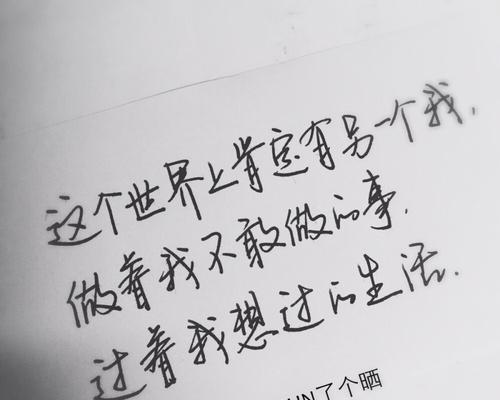 这个世界上肯定有另一个我.
做着我不敢做的事.
过着我想过的生活.
UN了个晒